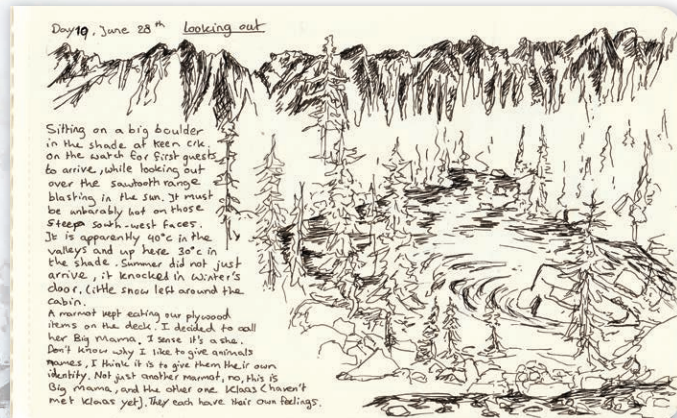 Day 19, June 28th looking out
Sitting on a big boulder
in the shade at keen crk.
on the watch for first guests
to arrive, while looking out
over the sawtooth range
blasting in the sun. It must
be unbarably hot on those
Steep south-west faces.
It is apparently 40°c in the
valleys and up here 30°c in
the shade. Summer did not just
arrive, it knocked in winter's
door. Little snow left around the
cabin.
A marmot kept eating our plywood
items on the deck. I decided to call
her Big Mama, I sense it's a she.
Don't know why I like to give animals
names, I think it is to give them their own
identity. Not just another marmot, no, this is
Big Mama, and the other one Klaas (haven't
met Klaas yet). They each have their own feelings.